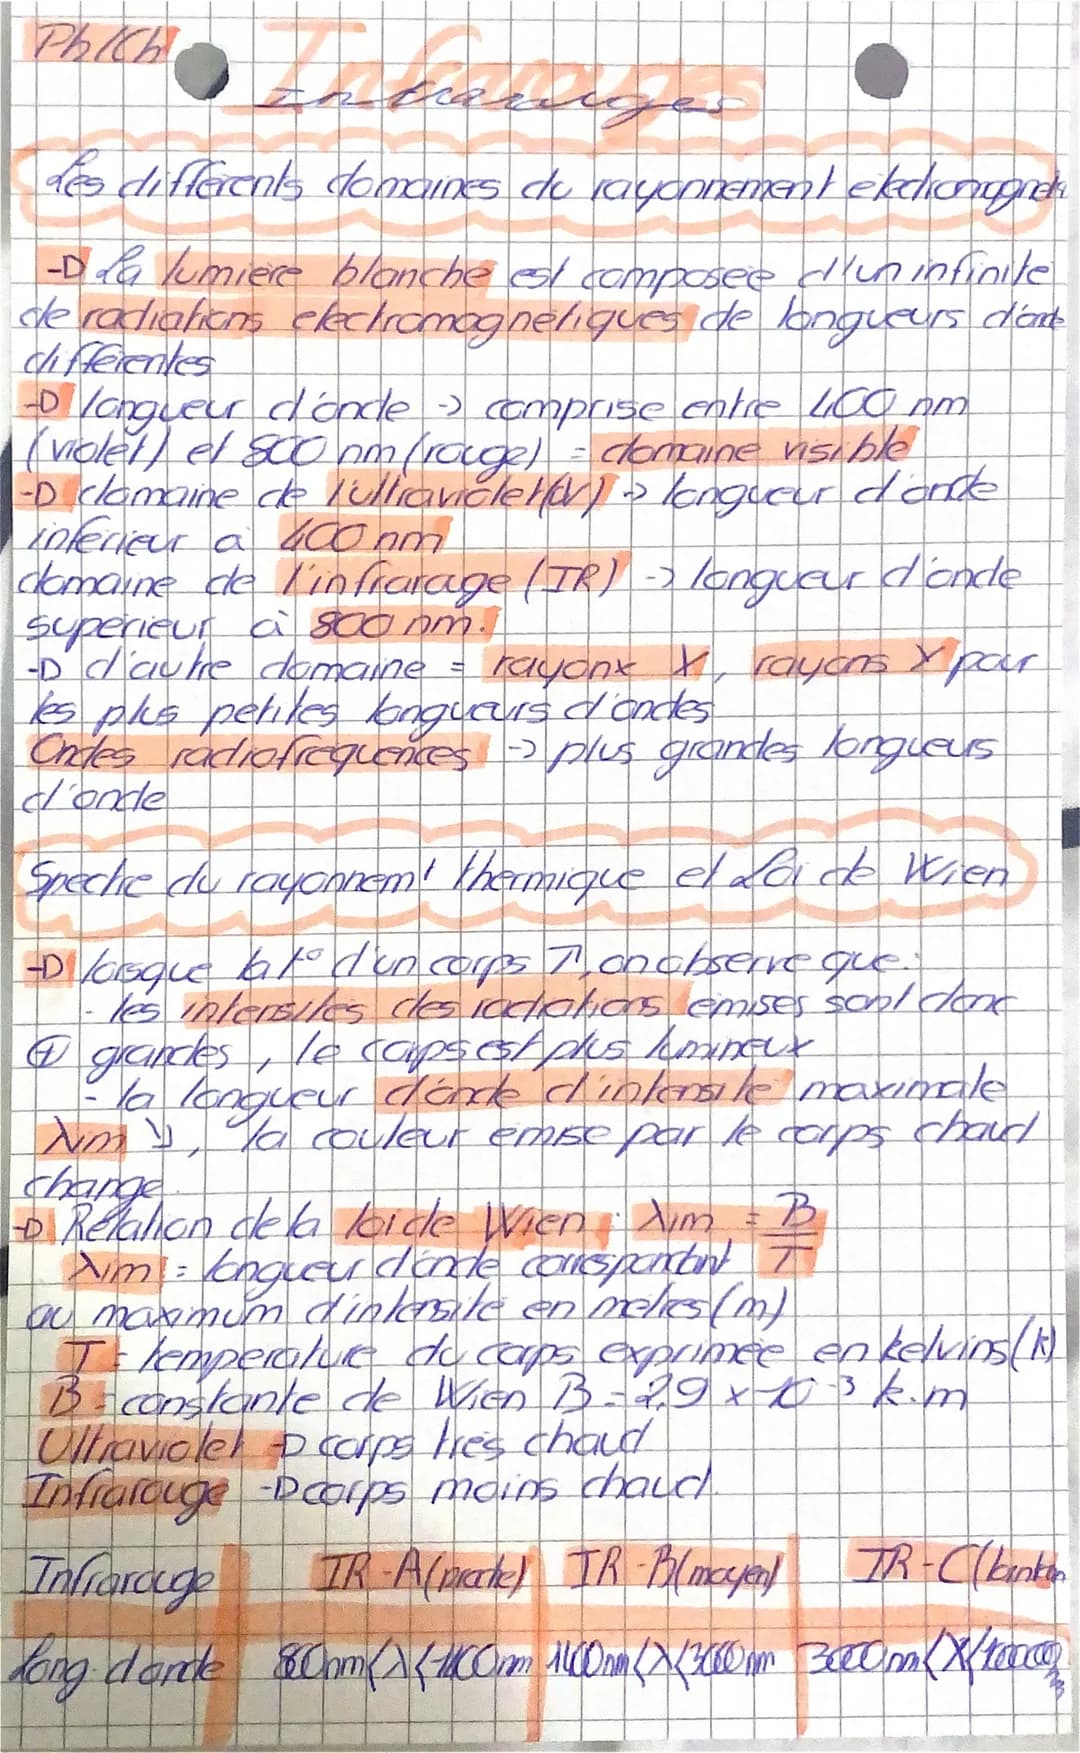 Ph/Ch
Infrarouges
Les différents domaines du rayonnement électromagnéti
-D La lumière blanche est composée d'un infinité
de radiations electromagnétiques de longueurs d'onde
différentes
-D longueur d'onde -> comprise entre 400 nm
(violet) et 800 nm (rouge) = domaine visible
-D domaine de l'ultraviolet (UV) -> longueur d'onde
inférieur à 400 nm
domaine de l'infrarouge (IR) -> longueur d'onde
supérieur à 800 nm.
-D d'autre domaine = rayonx X, rayons γ pour
les plus petites longueurs d'ondes
Ondes radiofrequences -> plus grandes longueurs
d'onde
Spectre du rayonnem^t thermique et Loi de Wien
-D lorsque la t° d'un corps ↗, on observe que :
- les intensités des radiations émises sont donc
⊕ grandes, le corps est plus lumineux
- la longueur d'onde d'intensité maximale
λim ↘, la couleur émise par le corps chaud
change
-D Relation de la loi de Wien : λim = B/T
λim = longueur d'onde correspondant
au maximum d'intensité en mètres (m)
T = température du corps exprimée en kelvins (K)
B = constante de Wien B = 2,9 x 10^-3 k.m
Ultraviolet -D corps très chaud
Infrarouge -D corps moins chaud.
Infrarouge IR-A (proche) IR-B (moyen) IR-C (lointain
long. d'onde 800nm<λ<1400nm 1400nm<λ<3000nm 3000nm<λ<